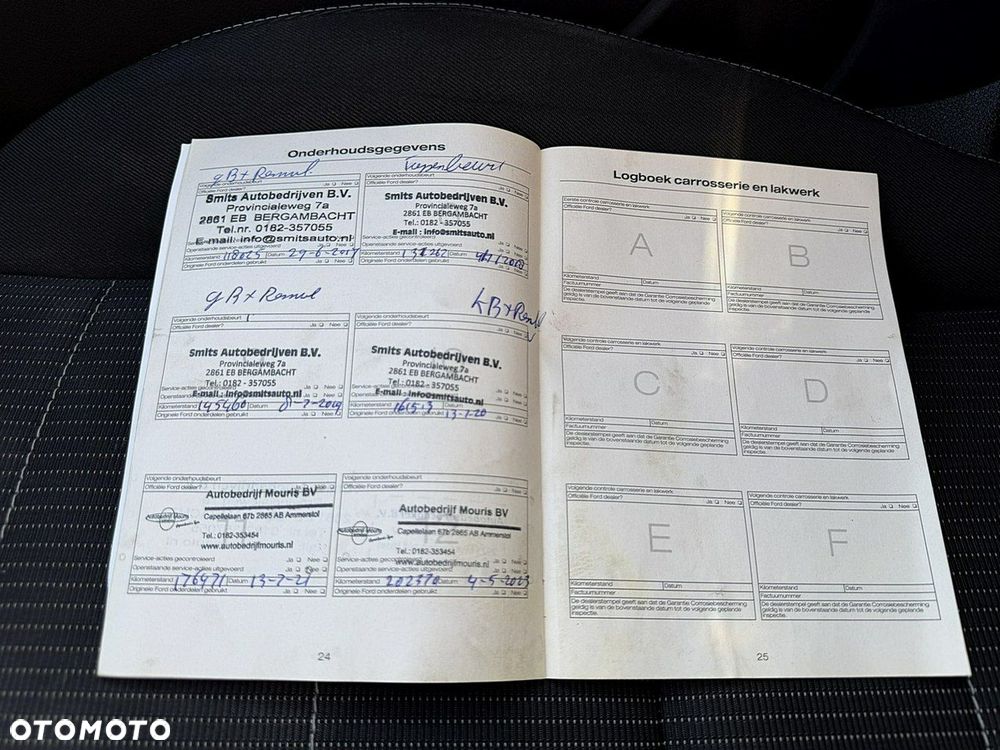 Onderhoudsgegevens
gB+
Volgende onderhoudsbeurt
Officiële Ford dealer? Ja Nee
Smits Autobedrijven B.V.
Provincialeweg 7a
2861 EB BERGAMBACHT
Tel.nr. 0182-357055
E-mail: info@smitsauto.nl
Openstaande service-acties uitgevoerd Ja Nee
Kilometerstand 118025 Datum 29-6-2017
Originele Ford onderdelen gebruikt Ja Nee
Tussenbeurt
Volgende onderhoudsbeurt
Officiële Ford dealer? Ja Nee
Smits Autobedrijven B.V.
Provincialeweg 7a
2861 EB BERGAMBACHT
Tel.: 0182 - 357055
E-mail : info@smitsauto.nl
Service-acties gecontroleerd Ja Nee
Openstaande service-acties uitgevoerd Ja Nee
Kilometerstand Datum
Originele Ford onderdelen gebruikt Ja Nee
gB+
Volgende onderhoudsbeurt
Officiële Ford dealer? Ja Nee
Smits Autobedrijven B.V.
Provincialeweg 7a
2861 EB BERGAMBACHT
Tel.: 0182 - 357055
Service-acties gecontroleerd Ja Nee
E-mail : info@smitsauto.nl
Kilometerstand 145460 Datum
Originele Ford onderdelen gebruikt Ja Nee
Volgende onderhoudsbeurt
Officiële Ford dealer? Ja Nee
Smits Autobedrijven B.V.
Provincialeweg 7a
2861 EB BERGAMBACHT
Tel.: 0182 - 357055
E-mail : info@smitsauto.nl
Kilometerstand Datum 13-7-20
Originele Ford onderdelen gebruikt Ja Nee
Volgende onderhoudsbeurt
Officiële Ford dealer? Ja Nee
Autobedrijf Mouris BV
Capellelaan 67b 2865 AB Ammerstol
Tel.: 0182-353454
www.autobedrijfmouris.nl
Service-acties gecontroleerd Ja Nee
Openstaande service-acties uitgevoerd Ja Nee
Kilometerstand 176471 Datum 13-7-21
Originele Ford onderdelen gebruikt Ja Nee
Volgende onderhoudsbeurt
Officiële Ford dealer? Ja Nee
Autobedrijf Mouris BV
Capellelaan 67b 2865 AB Ammerstol
Tel.: 0182-353454
www.autobedrijfmouris.nl
Service-acties gecontroleerd Ja Nee
Openstaande service-acties uitgevoerd Ja Nee
Kilometerstand 202370 Datum 4-5-2023
Originele Ford onderdelen gebruikt Ja Nee
24
Logboek carrosserie en lakwerk
Eerste controle carrosserie en lakwerk
Officiële Ford dealer?
Ja Nee
A
Kilometerstand Datum
Factuurnummer
De dealerstempel geeft aan dat de Garantie Corrosiebescherming
geldig is van de bovenstaande datum tot de volgende geplande
inspectie.
Volgende controle carrosserie en lakwerk
Officiële Ford dealer?
Ja Nee
B
Kilometerstand Datum
Factuurnummer
De dealerstempel geeft aan dat de Garantie Corrosiebescherming
geldig is van de bovenstaande datum tot de volgende geplande
inspectie.
Volgende controle carrosserie en lakwerk
Officiële Ford dealer?
Ja Nee
C
Kilometerstand Datum
Factuurnummer
De dealerstempel geeft aan dat de Garantie Corrosiebescherming
geldig is van de bovenstaande datum tot de volgende geplande
inspectie.
Volgende controle carrosserie en lakwerk
Officiële Ford dealer?
Ja Nee
D
Kilometerstand Datum
Factuurnummer
De dealerstempel geeft aan dat de Garantie Corrosiebescherming
geldig is van de bovenstaande datum tot de volgende geplande
inspectie.
Volgende controle carrosserie en lakwerk
Officiële Ford dealer?
Ja Nee
E
Kilometerstand Datum
Factuurnummer
De dealerstempel geeft aan dat de Garantie Corrosiebescherming
geldig is van de bovenstaande datum tot de volgende geplande
inspectie.
Volgende controle carrosserie en lakwerk
Officiële Ford dealer?
Ja Nee
F
Kilometerstand Datum
Factuurnummer
De dealerstempel geeft aan dat de Garantie Corrosiebescherming
geldig is van de bovenstaande datum tot de volgende geplande
inspectie.
25
OTOMOTO